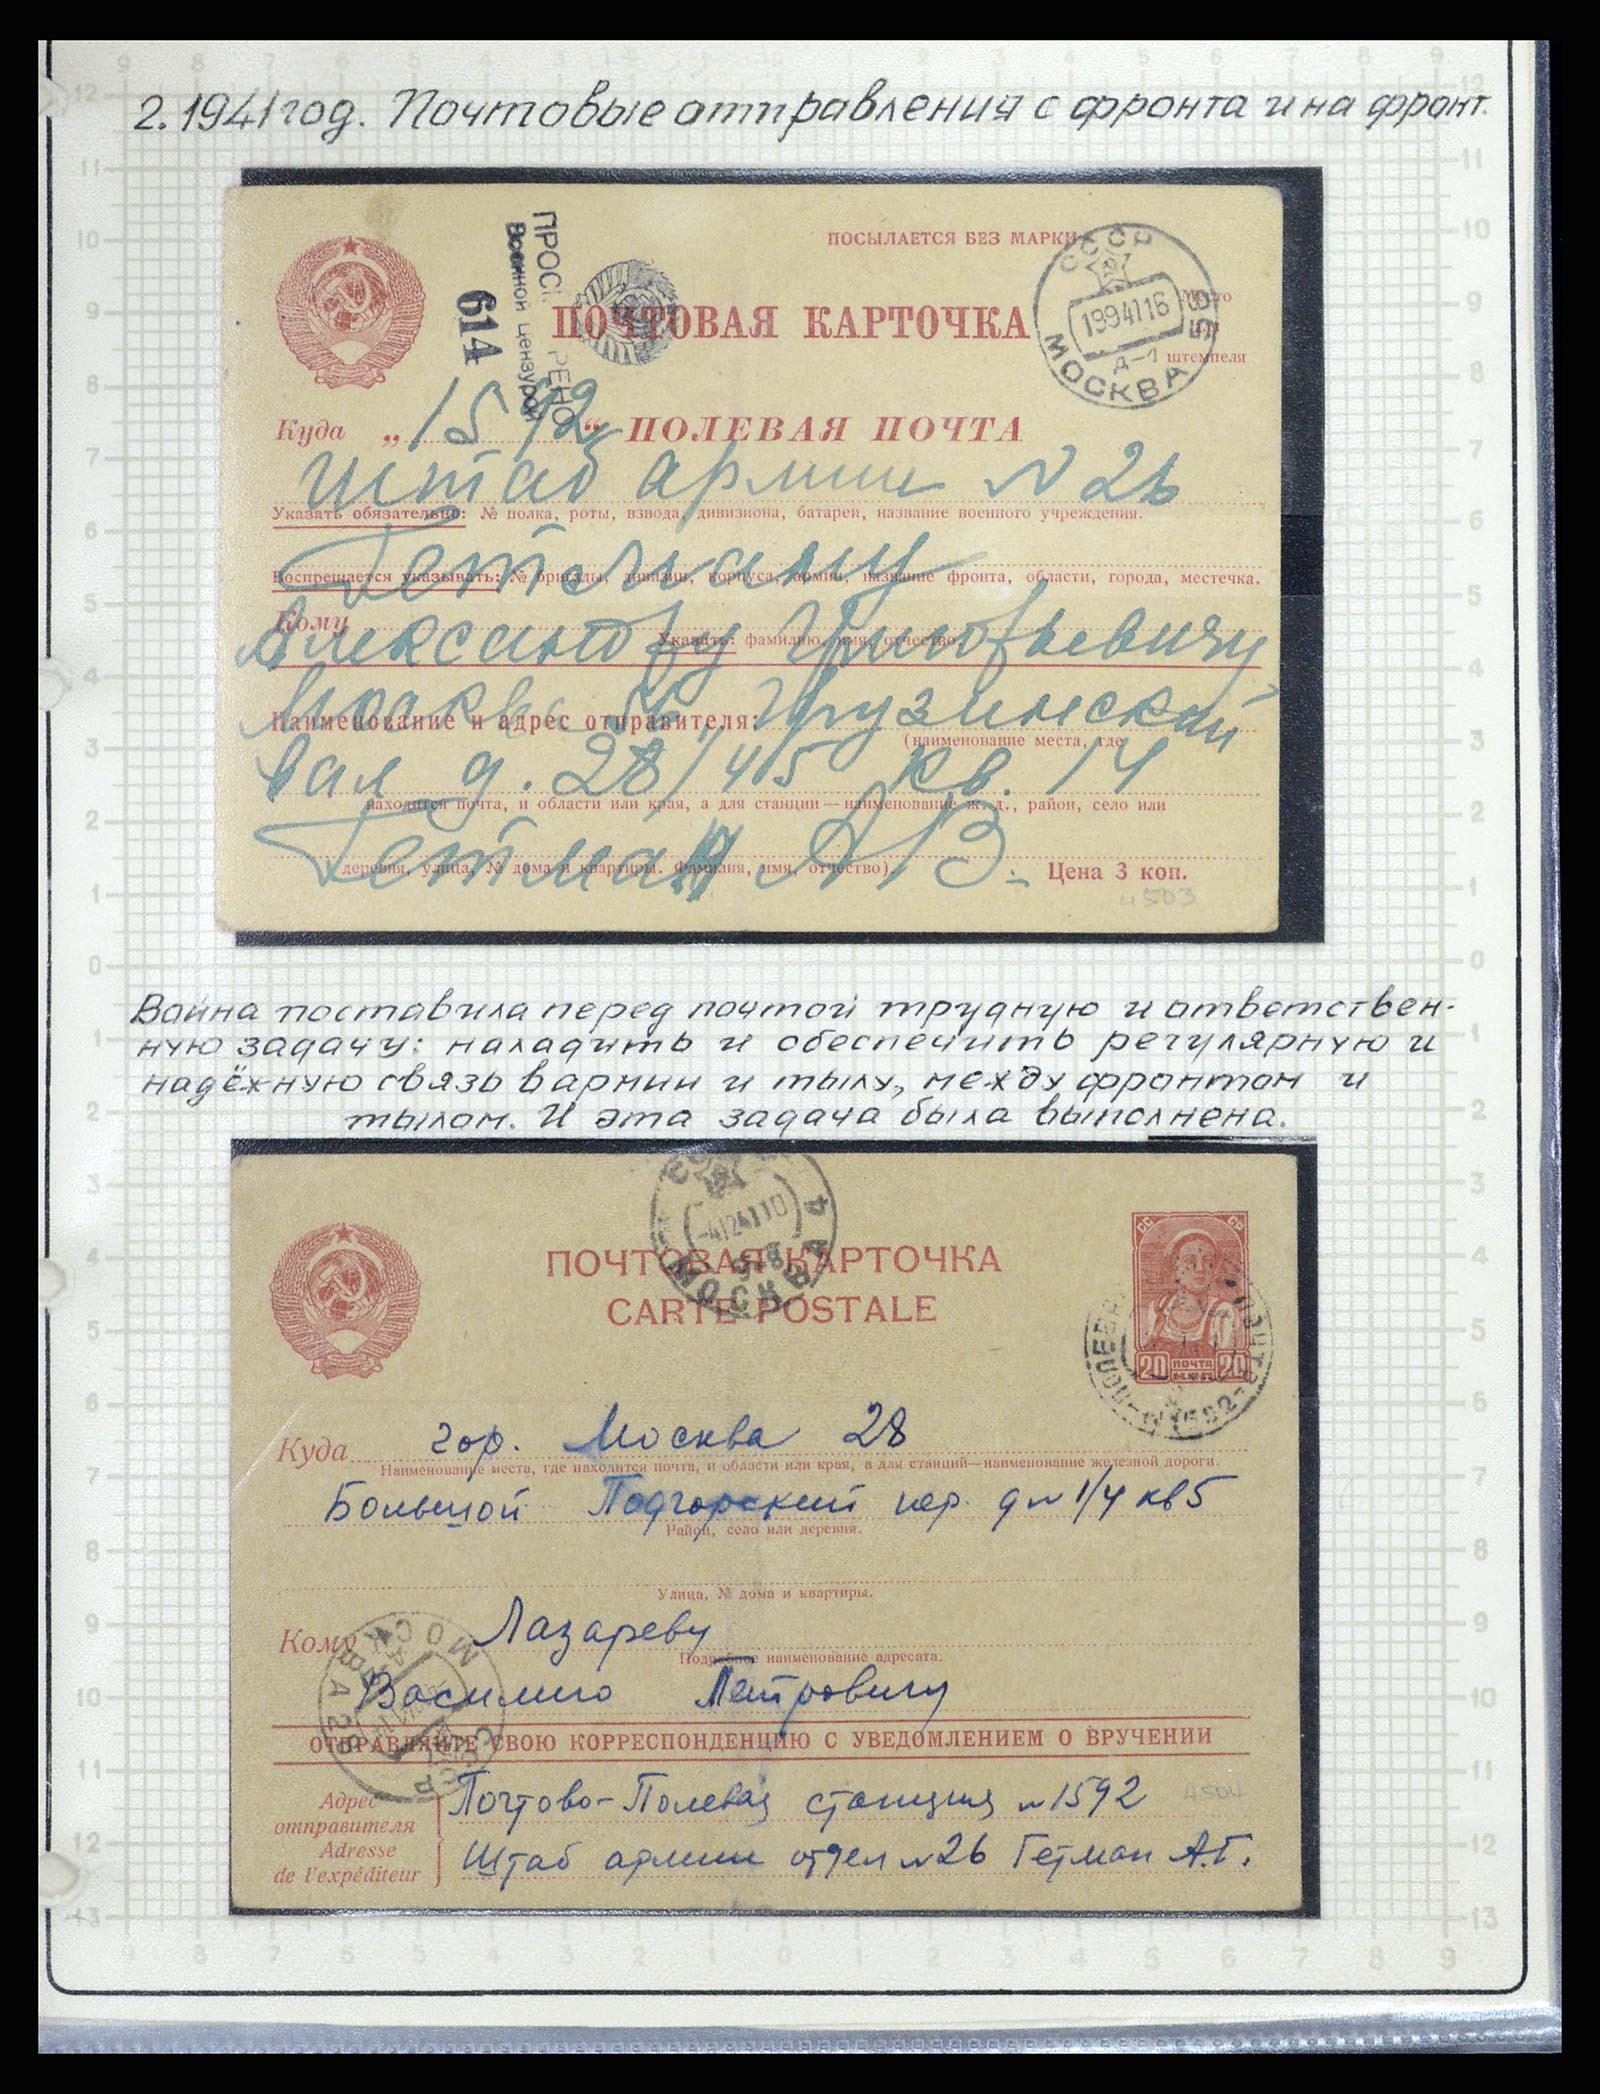 2. 1941 год. Почтовые отправления с фронта и на фронт.
ПОСЫЛАЕТСЯ БЕЗ МАРКИ
Военной цензурой
614
ПОЧТОВАЯ КАРТОЧКА
СССР
19 9 41 16
МОСКВА
Место
штемпеля
Куда „1592“ ПОЛЕВАЯ ПОЧТА
Штаб армии N 26
Указать обязательно: № полка, роты, взвода, дивизиона, батареи, название военного учреждения.
Гетману
Воспрещается указывать: № бригады, дивизии, корпуса, армии, название фронта, области, города, местечка.
Кому
Александру Григорьевичу
Указать: фамилию, имя, отчество
Москва 56 Грузинский
Наименование и адрес отправителя:
(наименование места, где
вал д. 28/45 кв. 14
находится почта, и области или края, а для станции — наименование ж. д., район, село или
Гетман А В.
деревня, улица, № дома и квартиры. Фамилия, имя, отчество).
Цена 3 коп.
4503
Война поставила перед почтой трудную и ответствен-
ную задачу: наладить и обеспечить регулярную и
надёжную связь в армии и тылу, между фронтом и
тылом. И эта задача была выполнена.
МОСКВА
ПОЧТОВАЯ КАРТОЧКА
CARTE POSTALE
СС СР
20 ПОЧТА 20
КОП
Куда гор. Москва 28
Наименование места, где находится почта, и области или края, а для станций—наименование железной дороги.
Большой Подгорский пер. д N 1/4 кв 5
Район, село или деревня.
Улица, № дома и квартиры.
Кому Лазареву
Подробное наименование адресата.
Василию Петровичу
МОСКВА 28
СССР
ОТПРАВЛЯЙТЕ СВОЮ КОРРЕСПОНДЕНЦИЮ С УВЕДОМЛЕНИЕМ О ВРУЧЕНИИ
Адрес
отправителя
Adresse
de l'expéditeur
Почтово-Полевая станция N 1592
4504
Штаб армии отдел N 26 Гетман А.Г.